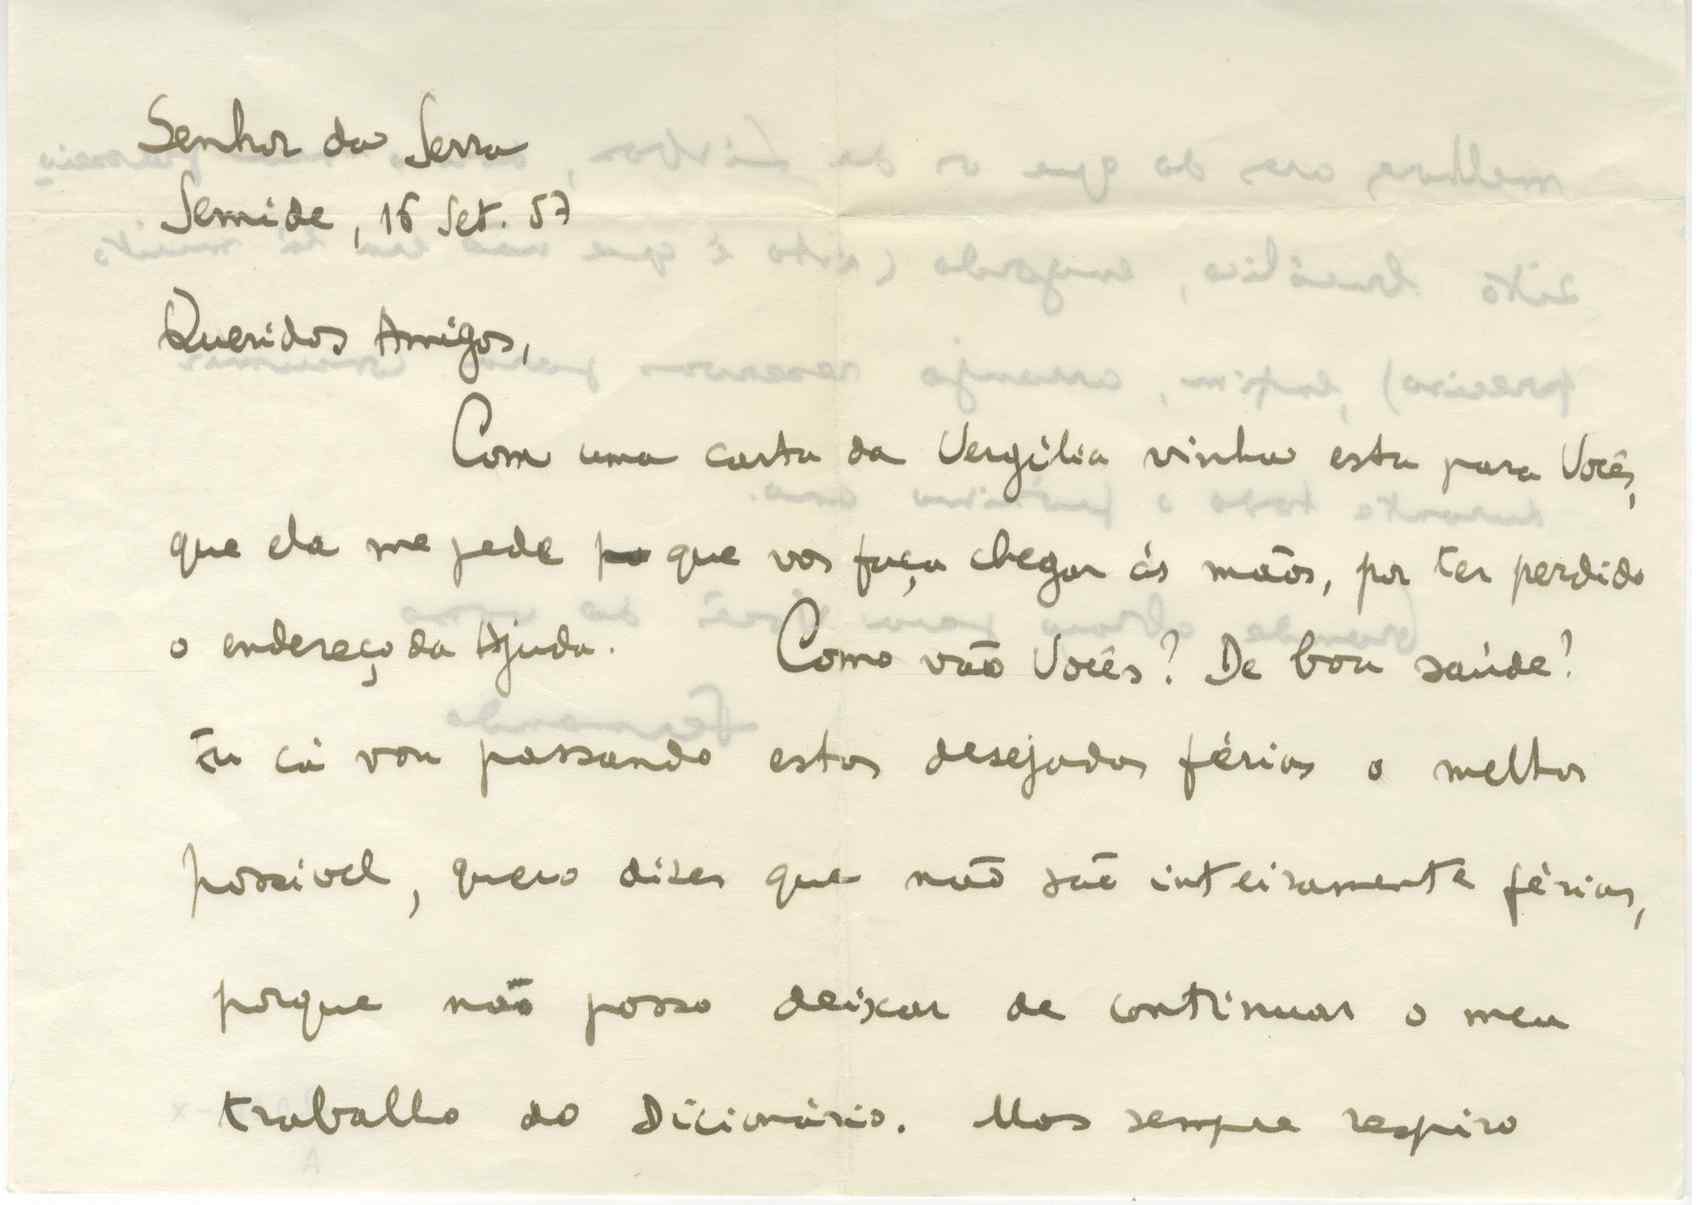 Senhor da Serra
Semide, 16 Set. 57
Queridos Amigos,
Com uma carta da Vergília vinha esta para Vocês,
que ela me pede que vos faça chegar às mãos, por ter perdido
o endereço da Ajuda. Como vão Vocês? De boa saúde?
Eu cá vou passando estas desejadas férias o melhor
possível, quero dizer que não são inteiramente férias,
porque não posso deixar de continuar o meu
trabalho do Dicionário. Mas sempre respiro